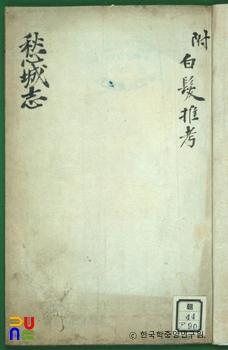 附白髮推考
愁城志
ⓒ 한국학중앙연구원